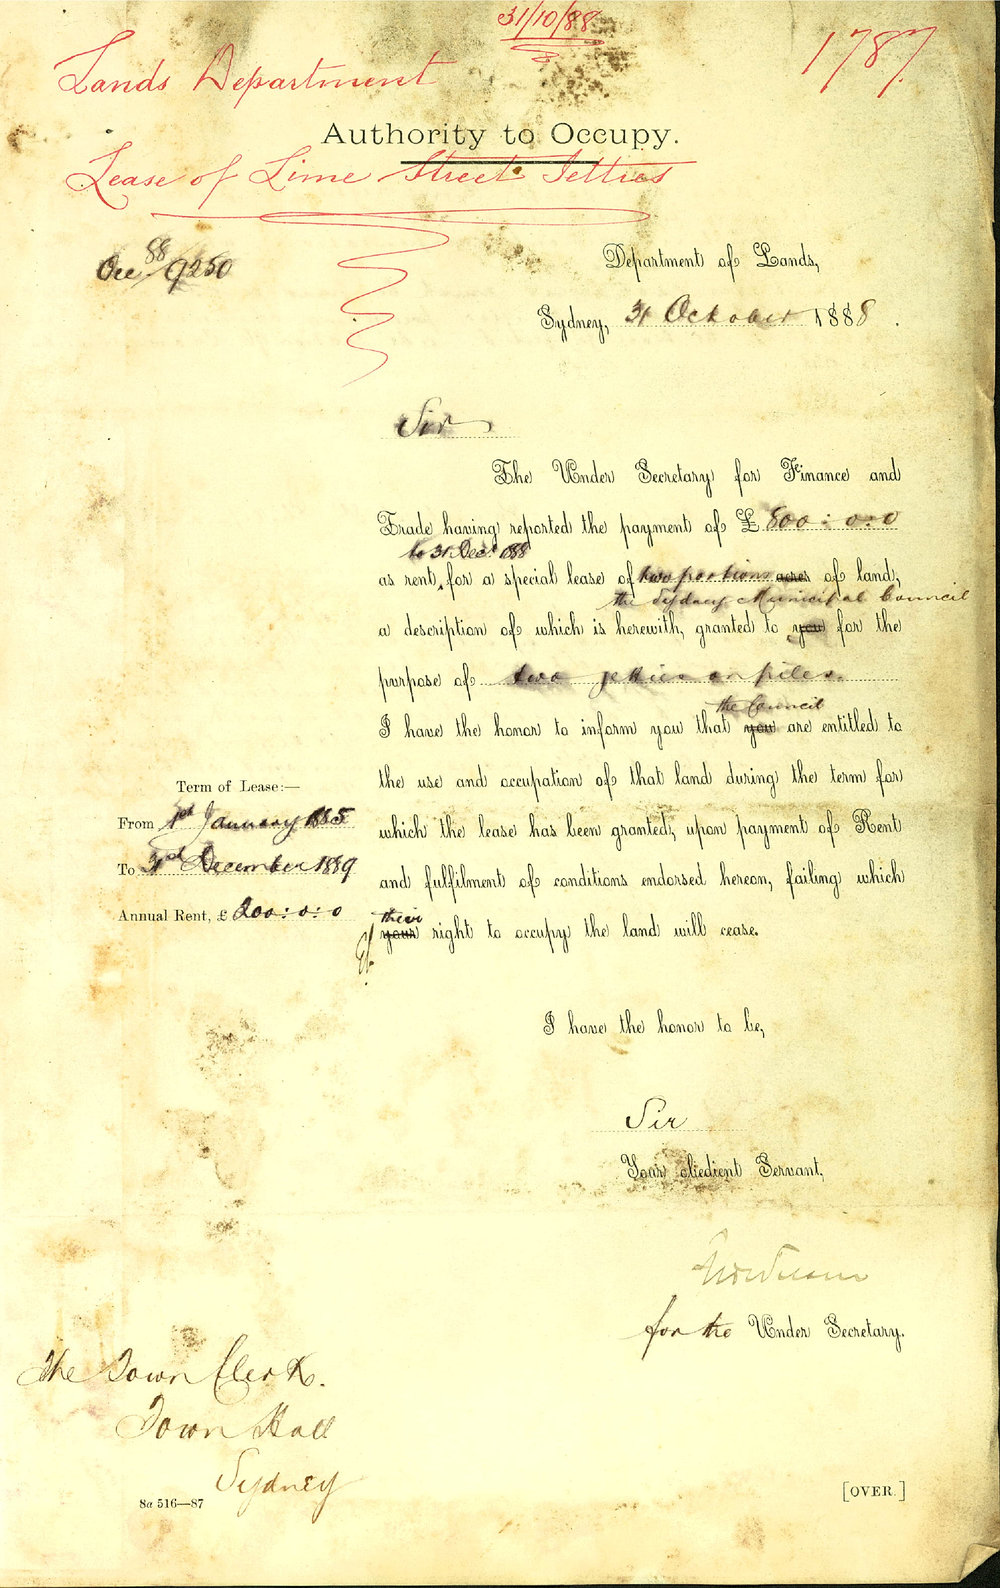 31/10/88
1787.
Lands Department
Authority to Occupy.
Lease of Lime Street Jetties
Occ 88/9250
Department of Lands,
Sydney, 31 October 1888.
Sir
The Under Secretary for Finance and
Trade having reported the payment of £ 800 : 0 : 0
to 31 Decr 1888
as rent, for a special lease of two portions acres of land,
the Sydney Municipal Council
a description of which is herewith, granted to you for the
purpose of two jetties on piles.
the Council
I have the honor to inform you that you are entitled to
the use and occupation of that land during the term for
which the lease has been granted, upon payment of Rent
and fulfilment of conditions endorsed hereon, failing which
their
your right to occupy the land will cease.
Term of Lease:—
From 1st January 1885
To 31st December 1889
Annual Rent, £ 200 : 0 : 0
I have the honor to be,
Sir
Your obedient Servant,
for the Under Secretary.
The Town Clerk.
Town Hall
Sydney
8a 516—87
[OVER.]